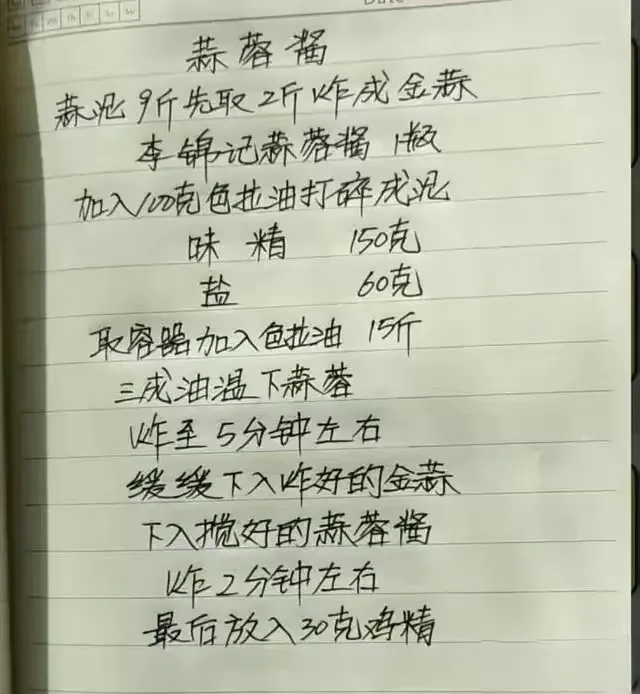 蒜蓉酱
蒜泥9斤先取2斤炸成金蒜
李锦记蒜蓉酱1瓶
加入100克色拉油打碎成泥
味精 150克
盐 60克
取容器加入色拉油 15斤
三成油温下蒜蓉
炸至5分钟左右
缓缓下入炸好的金蒜
下入搅好的蒜蓉酱
炸2分钟左右
最后放入30克鸡精